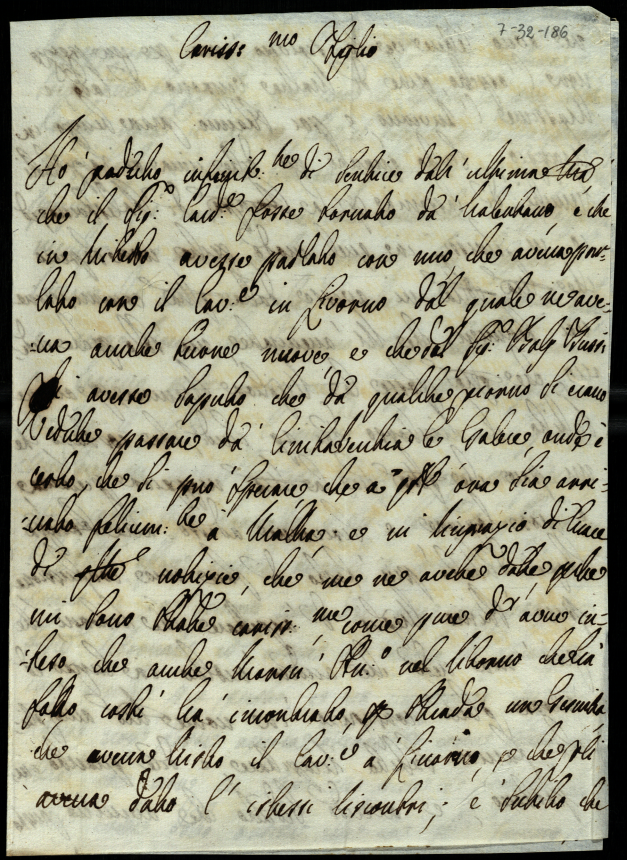 7-32-186
Cariss: mo Figlio
Ho' goduto infinit. te di sentire dall' ultima sua
che il Sig.r Card.e fosse tornato da' e che
in avesse parlato con mio, che aveva par-
lato con il Cav:e in Livorno dal quale ne ave-
-va anche buone nuove e che dal Sig.r Balì
gli avesse saputo che da qualche giorno si erano
vedute passare da' Civitavechia le Galere, onde è
certo, che si può sperare che a q.sta ora sia arri-
-vato felicem: te a' Malta, e vi ringrazio di
di q.ste notizie, che me ne avete date, che
mi sono state cariss: me come pure d' aver in-
-teso che anche Monsù nel ritorno che hà
fatto costì hà incontrato p strada un
che aveva visto il Cav:e a' Livorno, e che gli
aveva dato l' istessi riscontri; e subito che